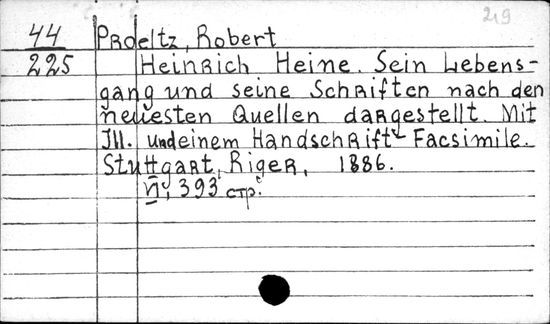 219
44 Proeltz, Robert
225 Heinrich Heine. Sein Lebens-
gang und seine Schriften nach den
neuesten Quellen dargestellt. Mit
Ill. und einem Handschrift-Facsimile.
Stuttgart, Riger, 1886.
393 стр.